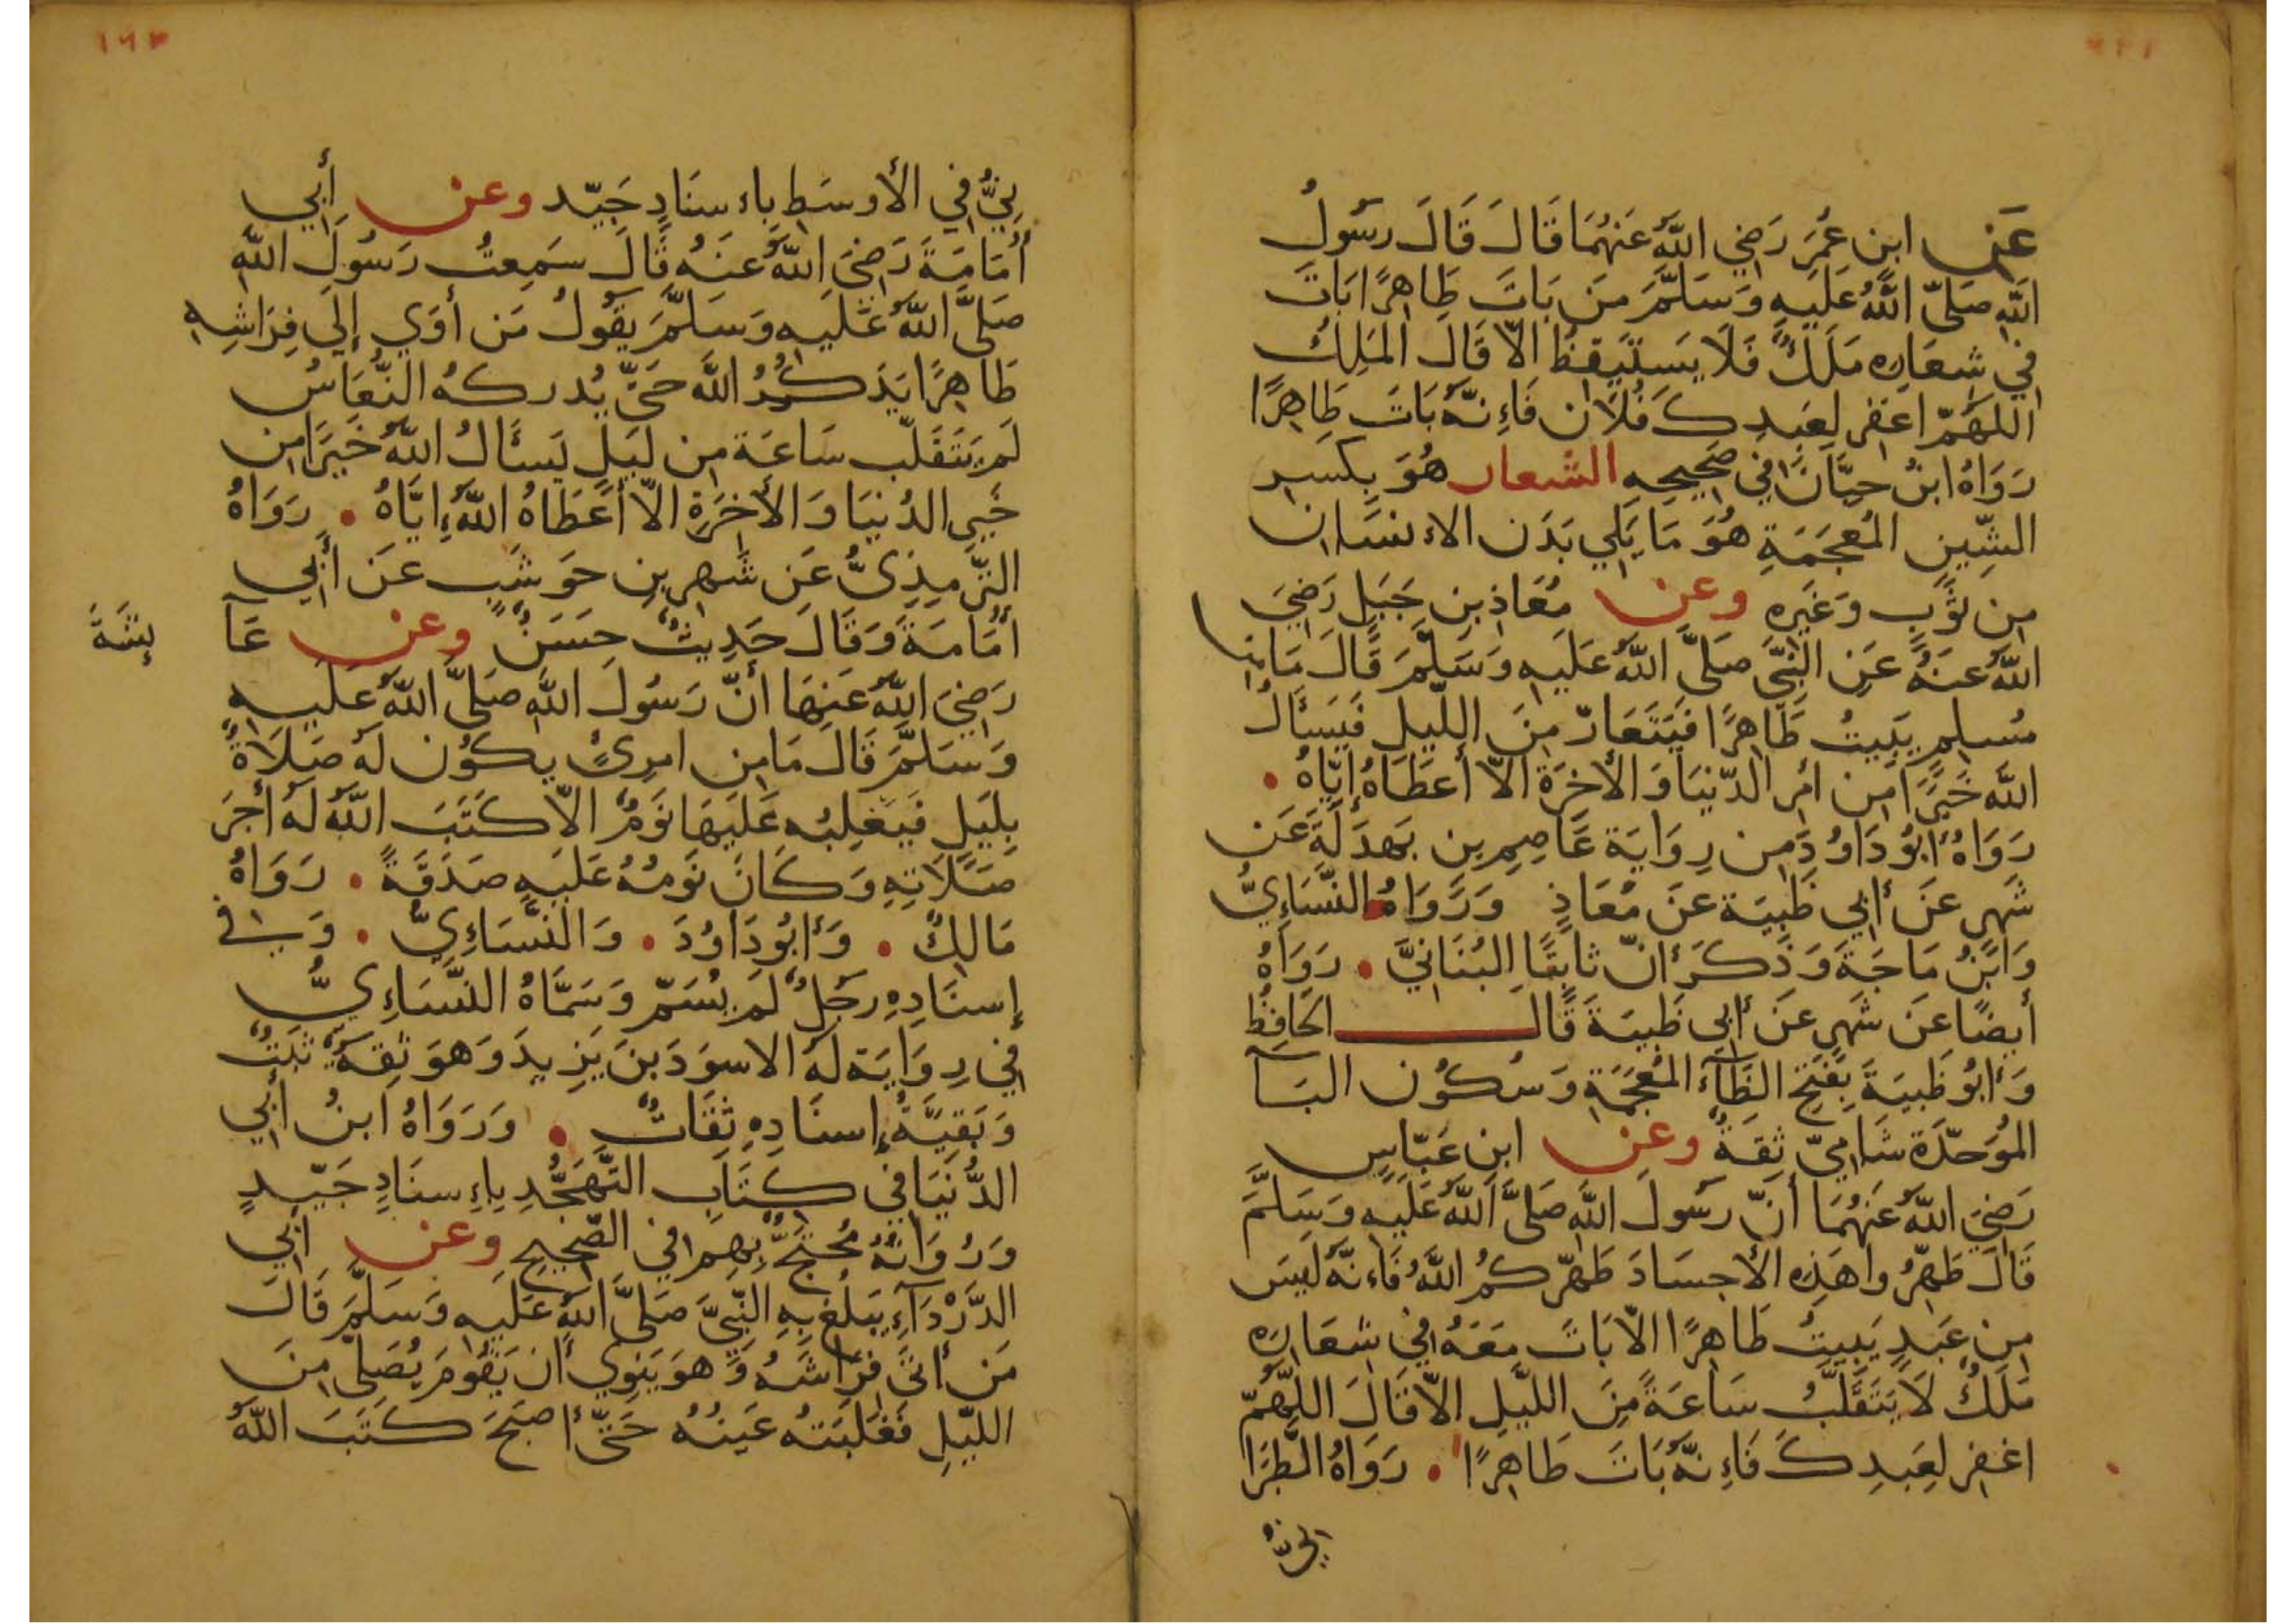 عَن ابن عُمَرَ رَضِي اللّٰهُ عَنهُمَا قَالَ قَالَ رسَولُ
اللّٰهِ صَلىّ اللّٰهُ عَلَيهِ وَسَلَّمَ مَن بَاتَ طَاهِرًا بَاتَ
في شِعَارِه مَلَكٌ فَلَا يَستَيقِظُ الاّ قَالَ المَلِكُ
اللهُمّ اغفِر لِعَبدِكَ فُلَان فَاءِنّهُ بَاتَ طَاهِرًا
رَوَاهُ ابنُ حِبّان في صَحِيحِهِ الشعار هُوَ بِكَسِر
الشِّينِ المُعجَمَةِ هُوَ مَا يَلِي بَدَن الاءنسَان
مِن ثَوبٍ وَغَيرِه وعن مُعَاذ بنِ جَبَلٍ رَضِيَ
اللّٰهُ عَنهُ عَنِ النّبِيّ صَلىَّ اللّٰهُ عَلَيهِ وَسَلّمَ قَالَ مَا مِن
مُسلِمٍ يَبِيتُ طَاهِرًا فَيَتَعَارّ مِنَ اللّيلِ فَيَسأَلُ
اللّٰهَ خَيرًا مِن امر الدّنيَا وَالأخِرَة الاّ أعطَاهُ إيّاهُ •
رَوَاهُ أبُو دَاوُدَ مِن رِوَايَة عَاصِم بنِ بَهدَلَةَ عَن
شَهر عَن أبِي ظَبيَة عَن مُعَاذٍ وَرَوَاهُ النّسَاءِيُّ
وَابنُ مَاجَةَ وَذَكَرَ انّ ثابِتًا البُنَانيّ • رَوَاهُ
أيضًا عَن شَهرٍ عَن أبِي ظَبيَة قَالَ الحَافِظُ
وَأبُو ظَبيَةَ بِفَتحِ الظَآءِ المُعجَمَةِ وَسُكُون البَآ
المُوَحّدَة شَامِيّ ثِقَةٌ وعن ابن عَبّاسٍ
رَضِيَ اللّٰهُ عَنهُمَا أنّ رسَولَ اللّٰهِ صَلىَّ اللّٰهُ عَلَيهِ وَسَلّمَ
قَالَ طَهّرُوا هَذِهِ الأجسَادَ طَهّرَكُمُ اللّٰهُ فَاءنّهُ لَيسَ
مِن عَبدٍ يَبِيتُ طَاهِرًا الاّ بَاتَ مَعَهُ في شِعَارِه
مَلَكٌ لَا يَتَقَلّبُ سَاعَةً مِنَ اللّيلِ الاّ قَالَ اللّهُمّ
اغفِر لِعَبدِكَ فَاءِنّهُ بَاتَ طَاهِرًا • رَوَاهُ الطَّبرَا
نِيُّ في الأوسَطِ بِاءسنَادٍ جَيّد وعن أبِي
أُمَامَةَ رَضِيَ اللّٰهُ عَنهُ قَالَ سَمِعتُ رَسُولَ اللّٰهِ
صَلىَّ اللّٰهُ عَلَيهِ وَسَلّمَ يَقُولُ مَن أوَى إلَى فِرَاشِهِ
طَاهِرًا يَذكُرُ اللّٰهَ حَتىّ يُدرِكهُ النّعَاسُ
لَم يَتَقَلّب سَاعَة مِن لَيلٍ يَسأَلُ اللّٰهَ خَيرًا مِن
خَيرِ الدُنيَا وَالأخِرَةِ الاّ أعطَاهُ اللّٰهُ إيّاهُ • رَوَاهُ
الترّمِذِىُّ عَن شَهرِ بنِ حَوشَبٍ عَن أبِي
أُمَامَةَ وَقَالَ حَدِيثٌ حَسَنٌ وعن عَآ
ئِشَةَ
رَضِيَ اللّٰهُ عَنهَا أنّ رَسُولَ اللّٰهِ صَلىَّ اللّٰهُ عَلَيهِ
وَسَلّمَ قَالَ مَا مِن امرِئٍ يكُون لَهُ صَلَاةٌ
بِلَيلٍ فَيَغلِبُه عَلَيهَا نَومٌ الاّ كَتَبَ اللّٰهُ لَهُ أجرَ
صَلَاتِهِ وَكَانَ نَومُهُ عَلَيهِ صَدَقَةً • رَوَاهُ
مَالِكٌ • وَأبُو دَاوُدَ • وَالنّسَاءِيّ • وَفي
إسنَادِهِ رَجُلٌ لَم يُسَمّ وَسَمّاهُ النّسَاءِىُّ
في رِوَايَة لَهُ الاسوَدَ بنَ يَزِيدَ وَهوَ ثِقَةٌ ثَبتٌ
وَبَقِيّةُ إسنَادِهِ ثِقَاتٌ • وَرَوَاهُ ابنُ أبِي
الدُّنيَا في كِتَابِ التّهَجُّدِ بِاءِسنَادٍ جَيّدٍ
وَرُوَاتُهُ مُحتَجٌّ بِهِم في الصّحِيحِ وعن أبِي
الدَّرْدَآءِ يَبلُغ بِهِ النّبِيّ صَلىَّ اللّٰهُ عَلَيهِ وَسَلّمَ قَالَ
مَن أتىَ فِرَاشَهُ وَهوَ يَنوِي أن يَقُومَ يُصَلِى مِنَ
اللّيلِ فَغَلَبَتهُ عَينُهُ حَتىّ أصبَحَ كَتَبَ اللّٰهُ